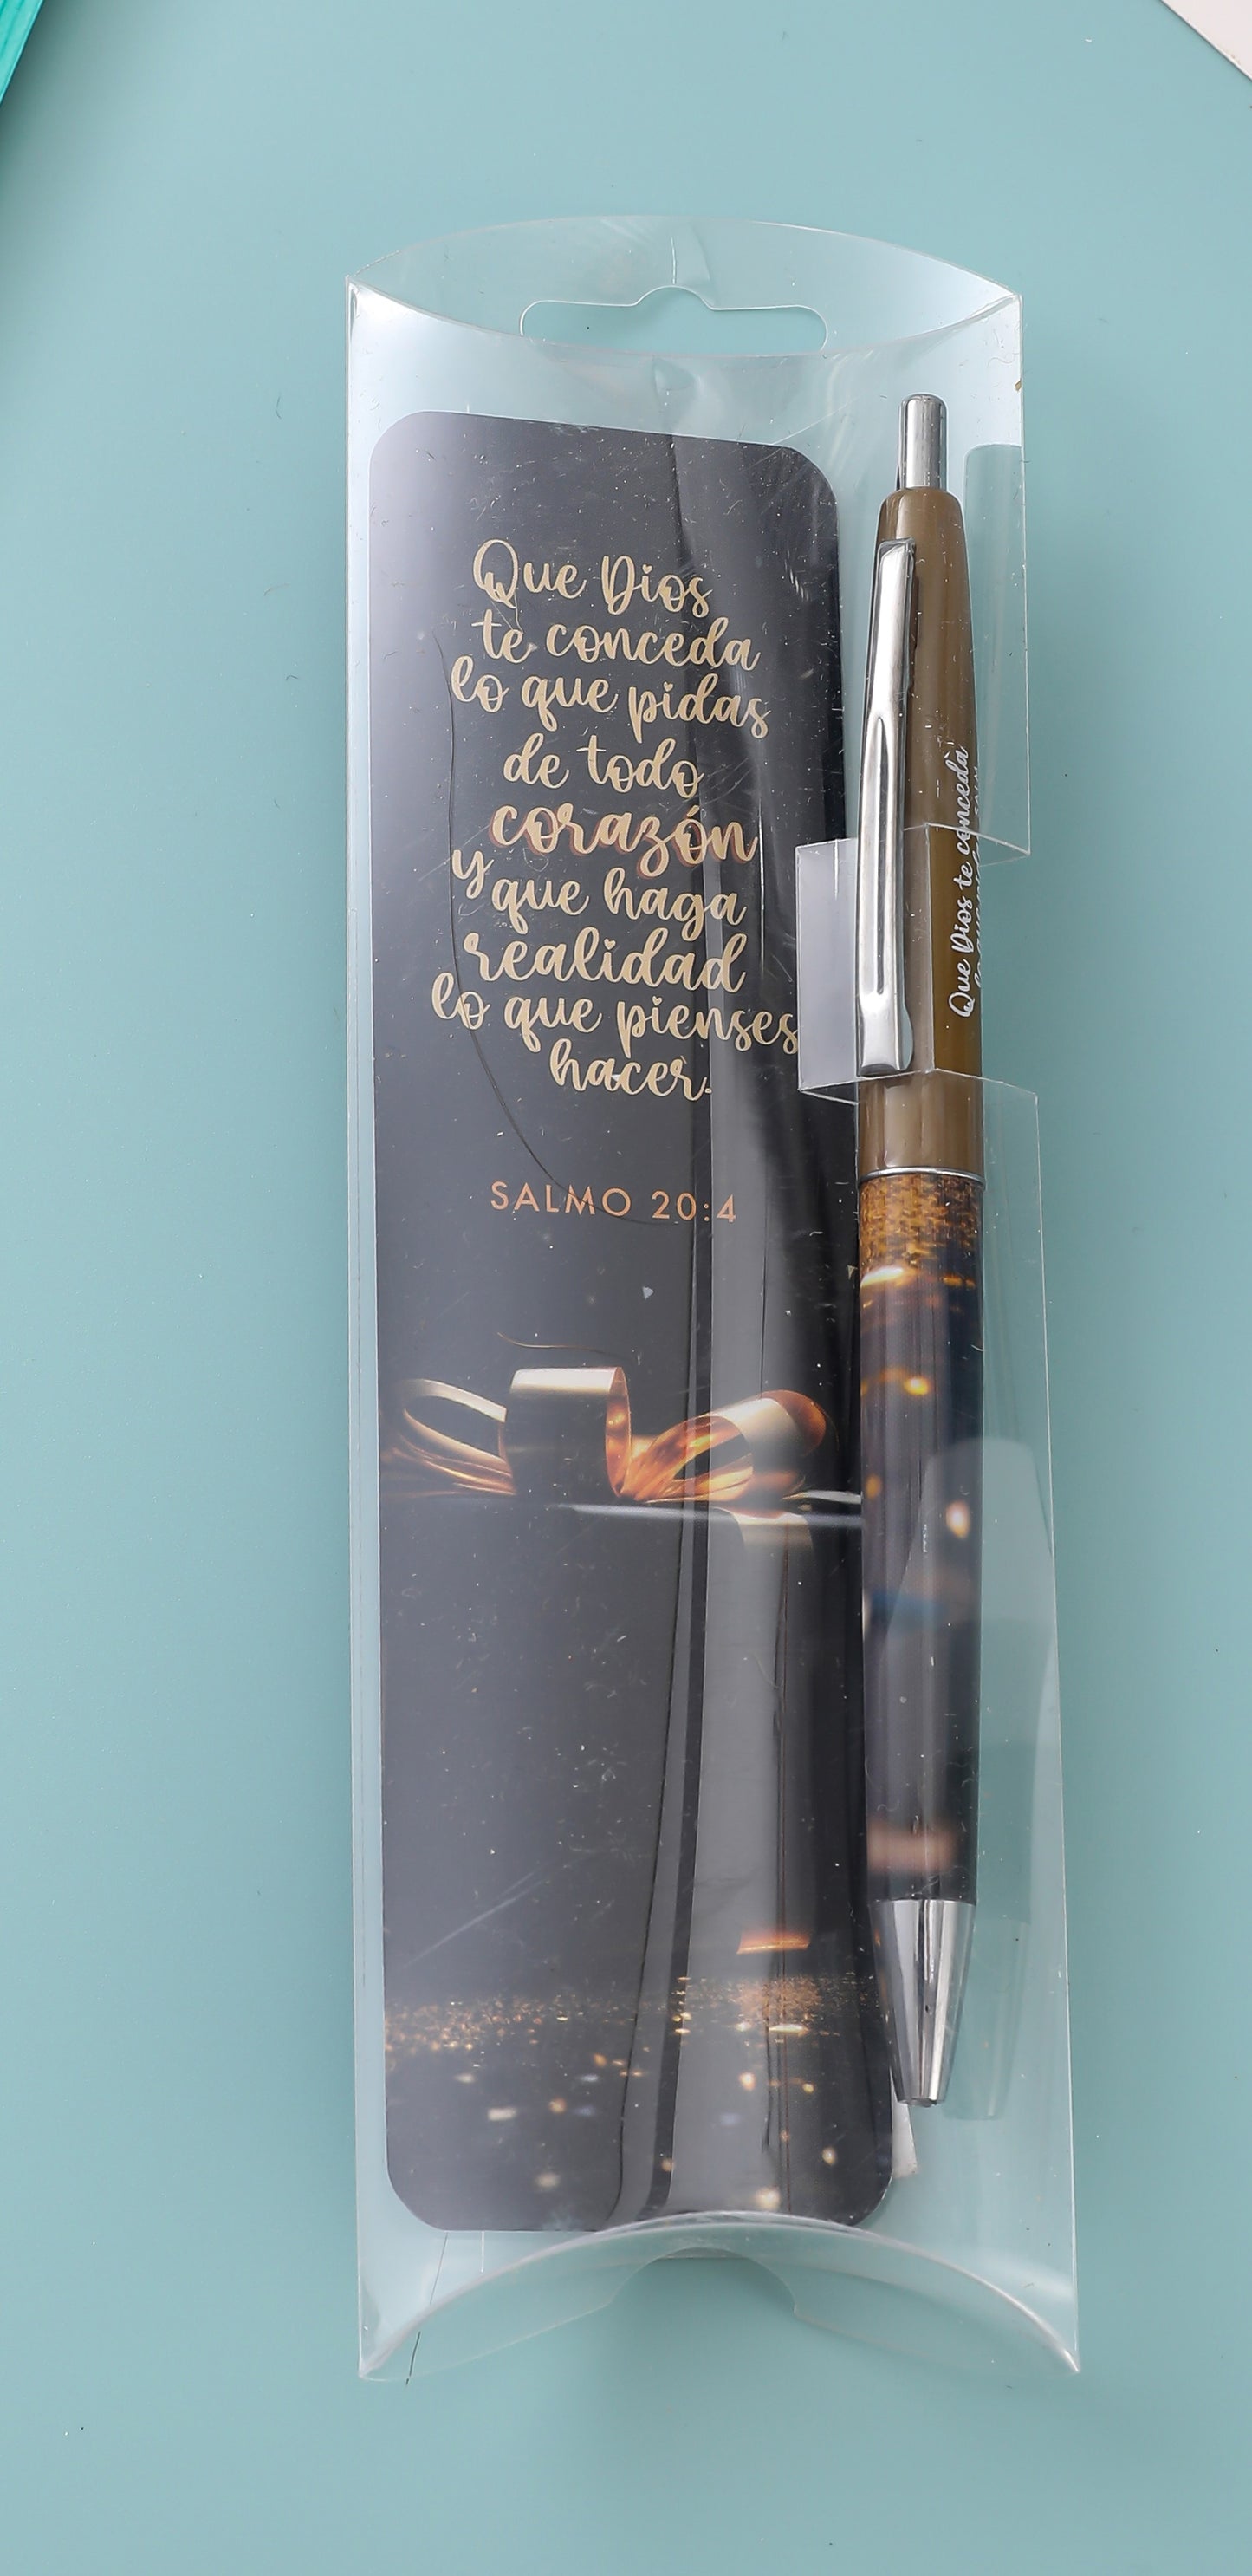 Que Dios
te conceda
lo que pidas
de todo
corazón
y que haga
realidad
lo que pienses
hacer.
SALMO 20:4
Que Dios te conceda